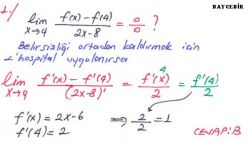 BAYGEBİR
1-/ lim x→4 f'(x) - f'(4) / 2x-8 = 0/0 ?
Belirsizliği ortadan kaldırmak için
L'hospital uygulanırsa
lim x→4 f'(x) - f'(4) / (2x-8)' = f'(x) 4 / 2 = f'(4) / 2
f'(x) = 2x-6 ⇒ 2/2 = 1
f'(4) = 2
CEVAP:B